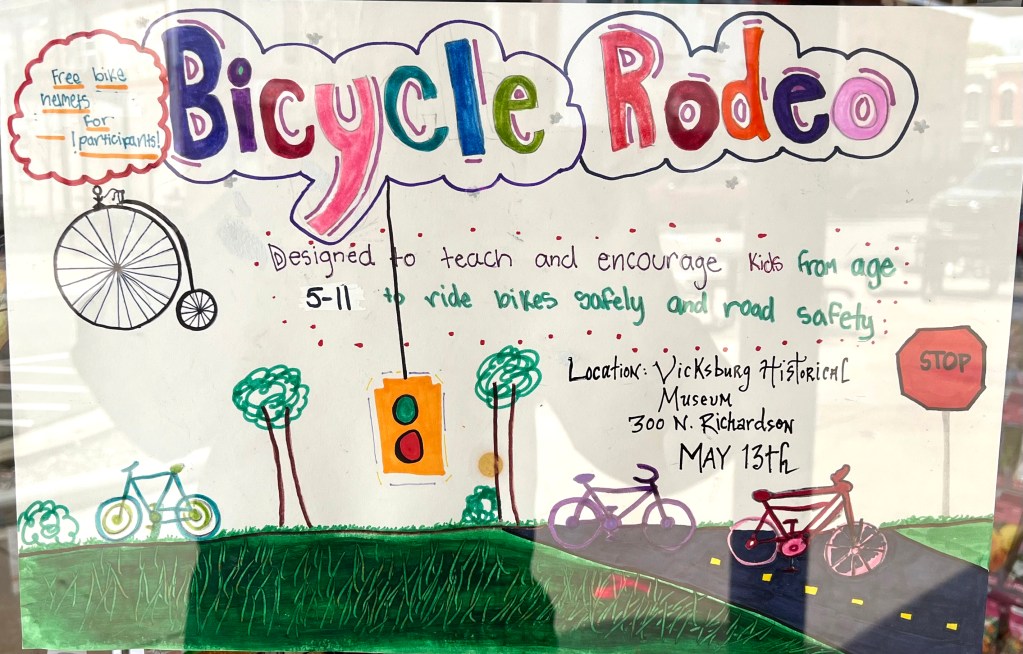 Bicycle Rodeo
Free bike
helmets
for
participants!
Designed to teach and encourage kids from age
5-11 to ride bikes safely and road safety
Location: Vicksburg Historical
Museum
300 N. Richardson
MAY 13th
STOP